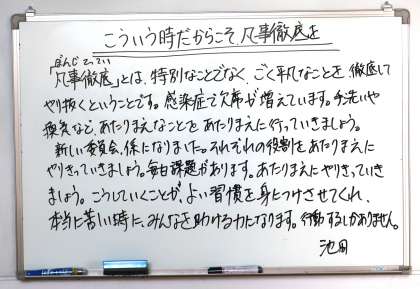 こういう時だからこそ凡事徹底を
ぼんじてってい
「凡事徹底」とは、特別なことでなく、ごく平凡なことを、徹底して
やり抜くということです。感染症で欠席が増えています。手洗いや
換気など、あたりまえなことをあたりまえに行っていきましょう。
新しい委員会、係になりました。それぞれの役割をあたりまえに
やりきっていきましょう。毎日課題があります。あたりまえにやりきっていき
ましょう。こうしていくことが、よい習慣を身につけさせてくれ、
本当に苦しい時に、みんなを助ける力になります。行動するしかありません。
池田